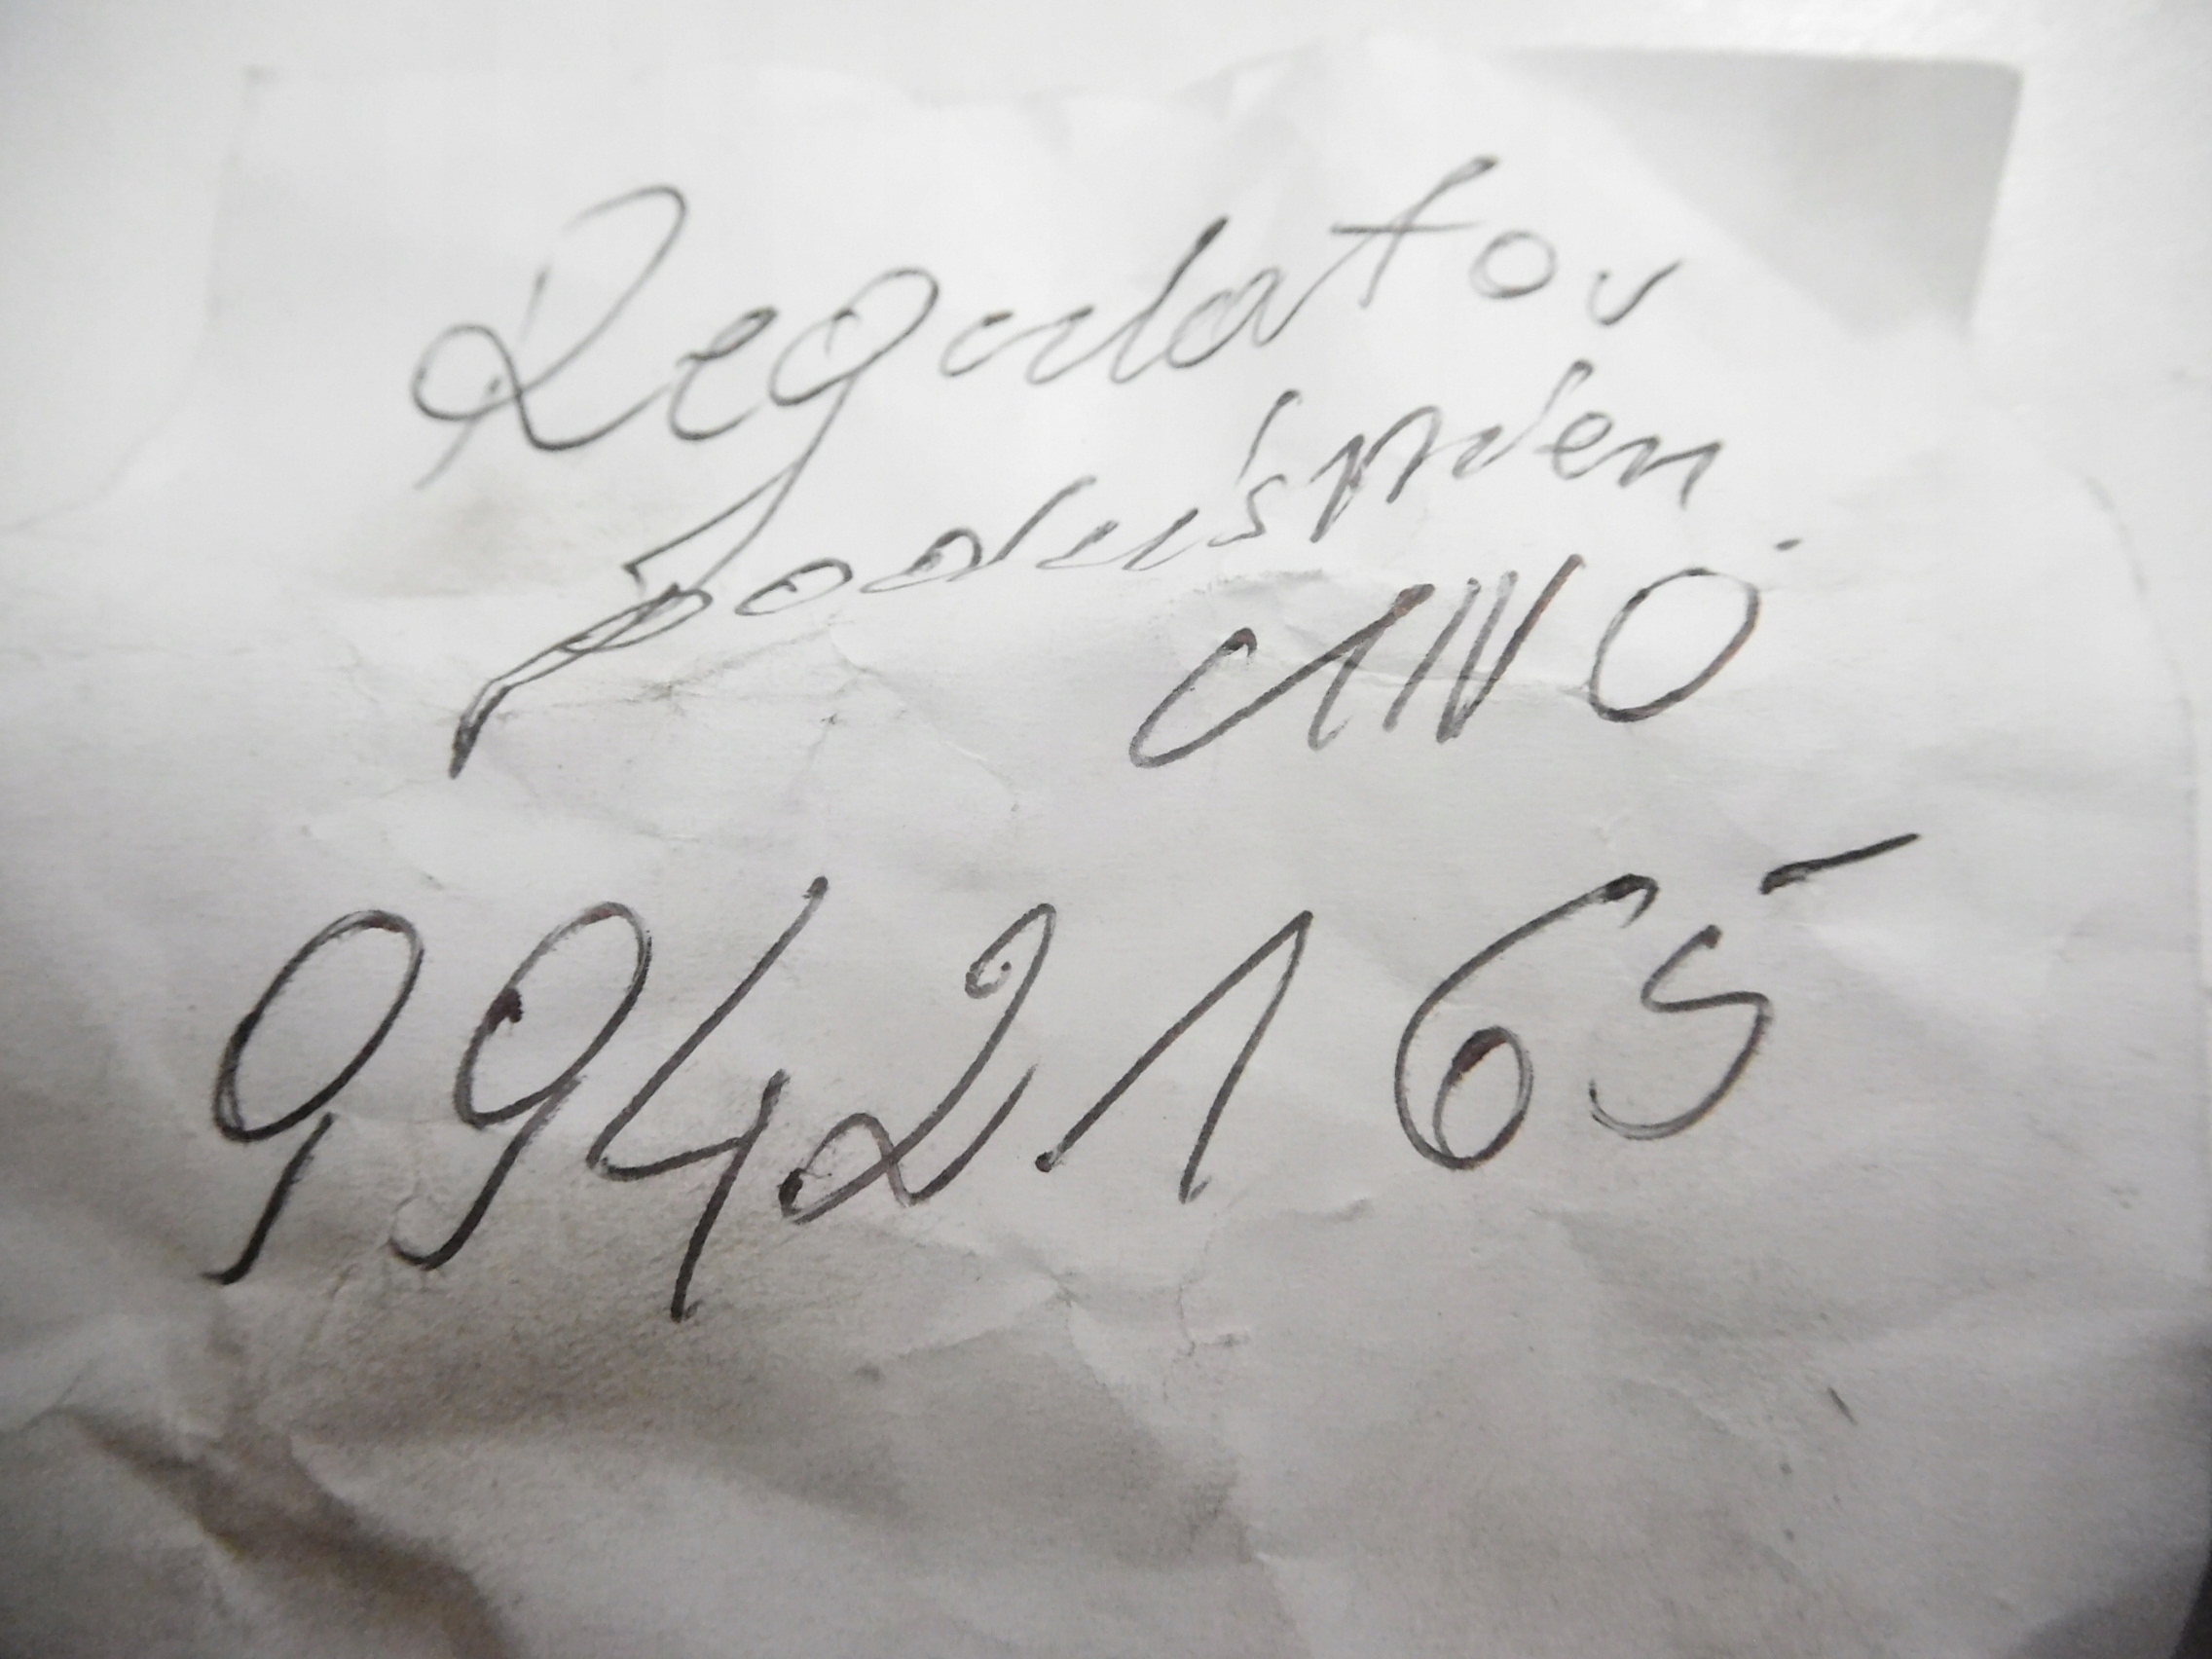 Regulator
podciśnień
UNO
9942165